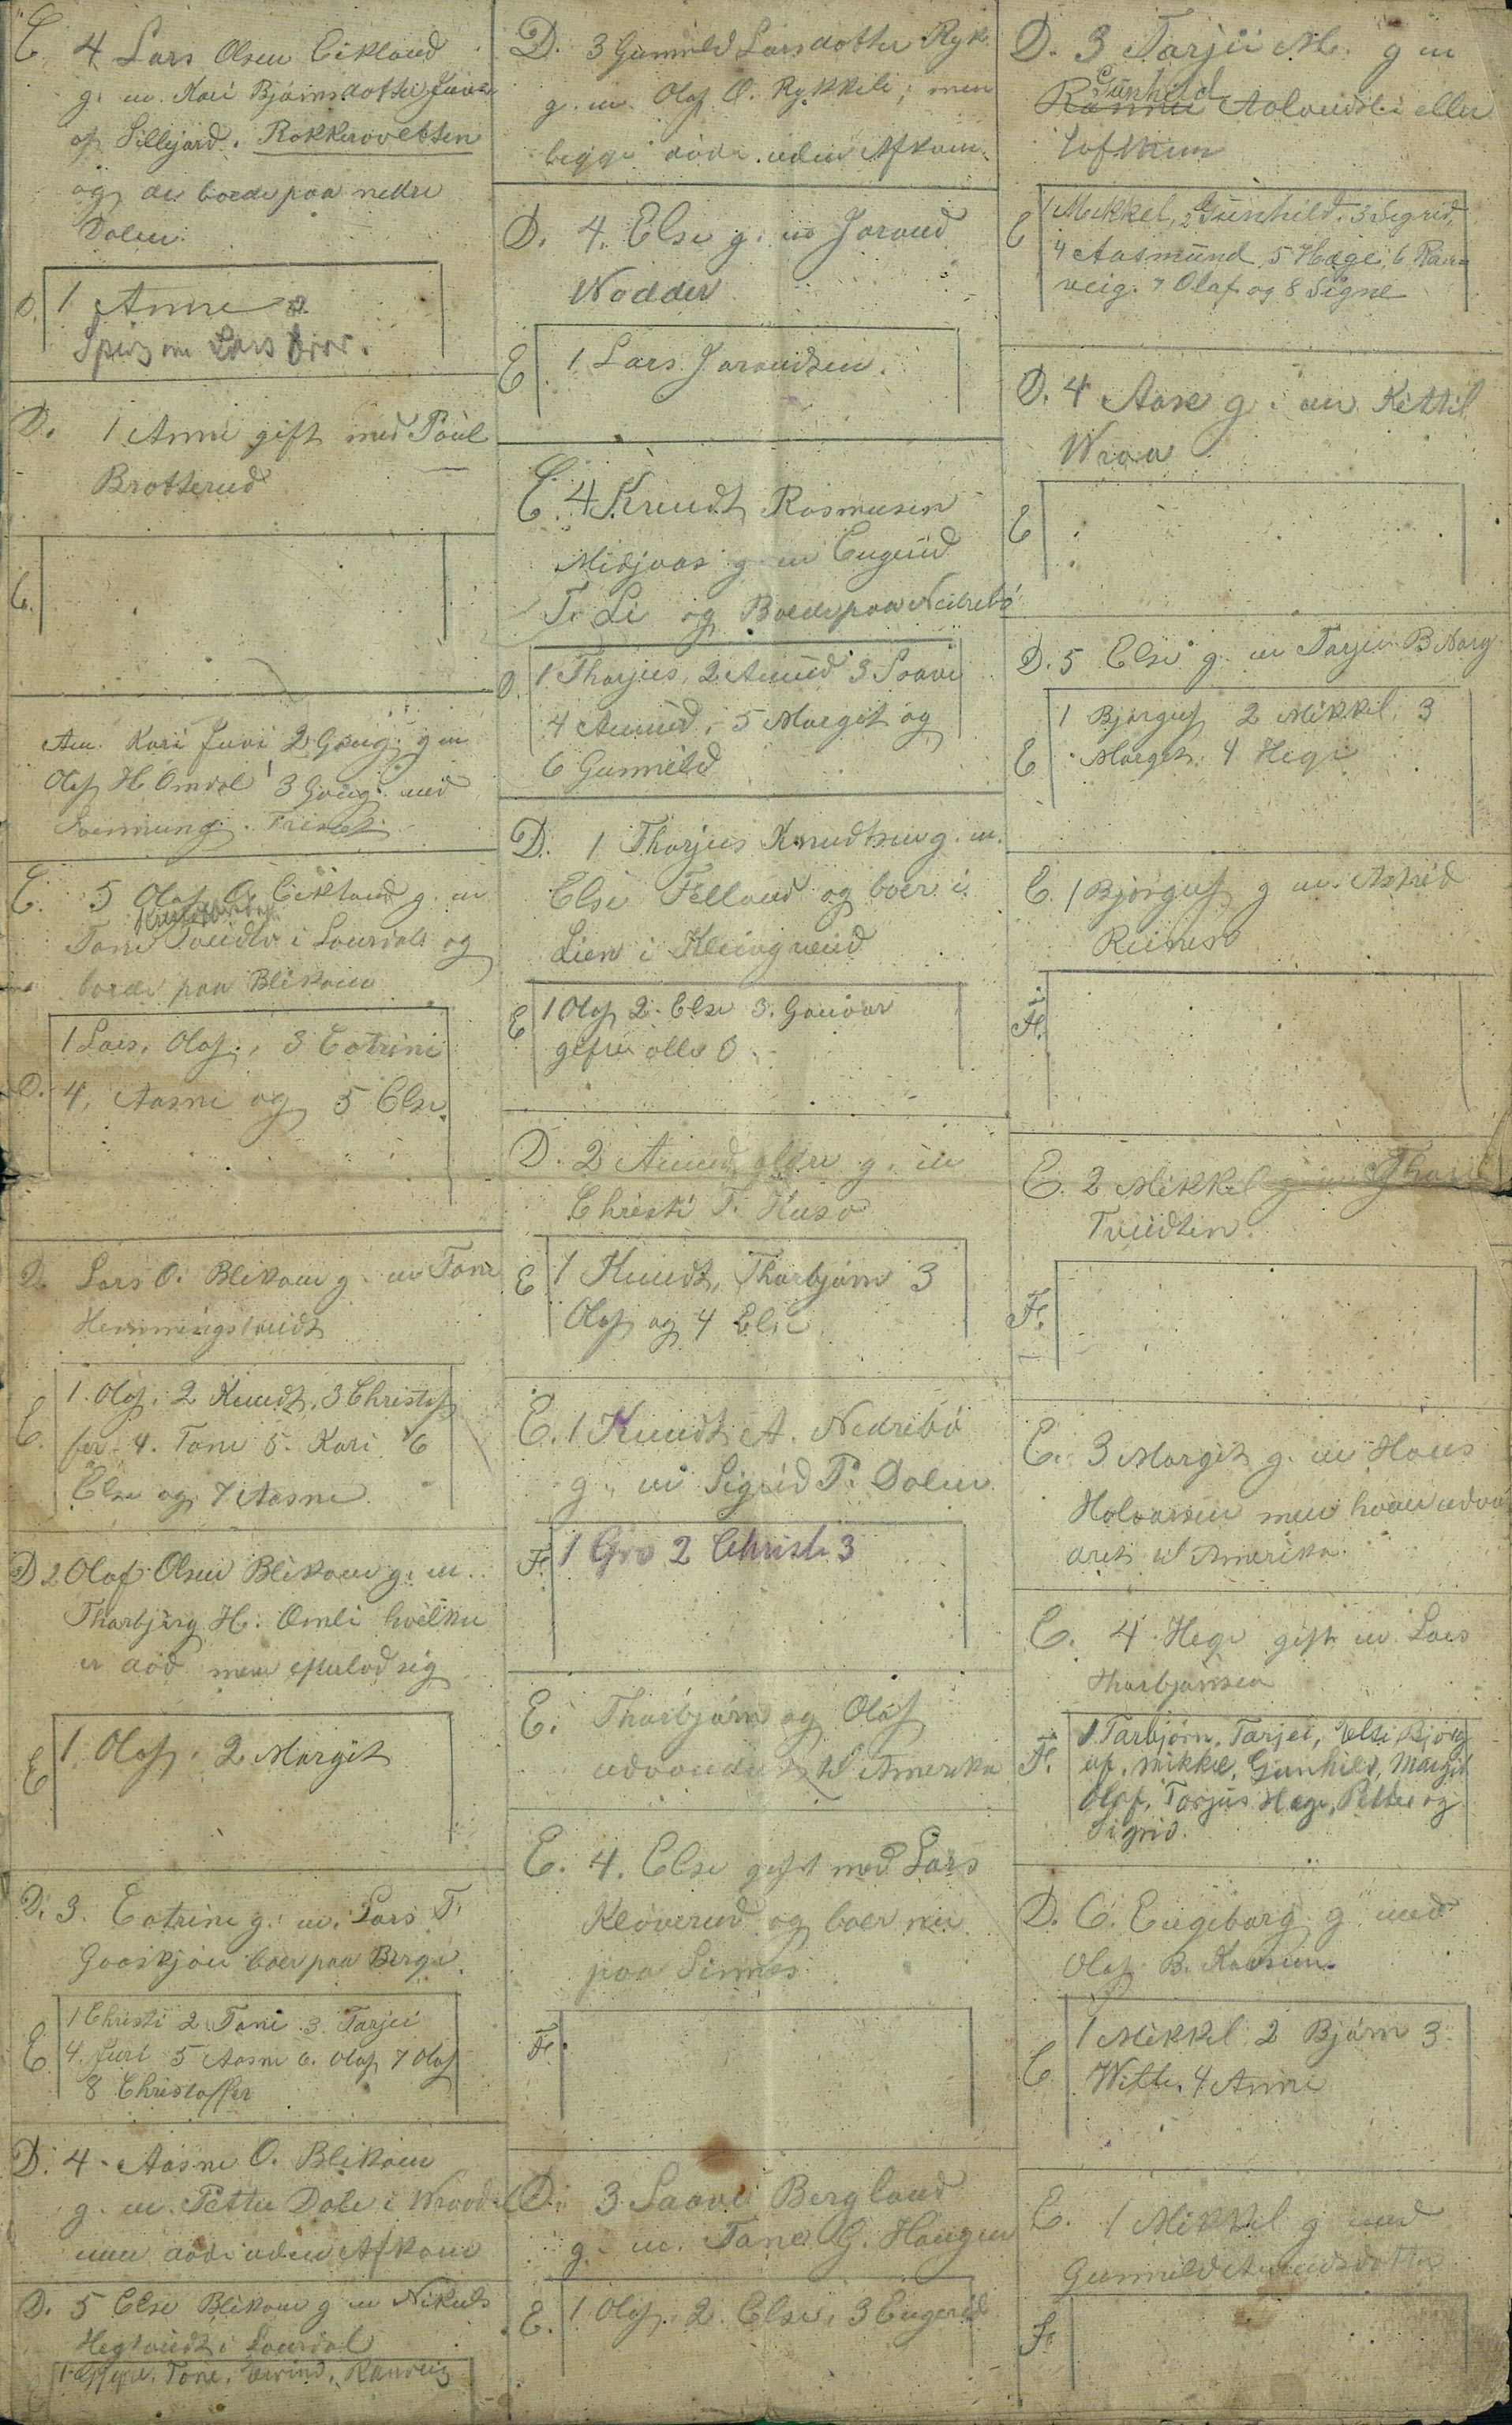 C. 4 Lars Olsen Eikland
g. m. Kari Bjørnsdotter Juve
af Sillejord. Rokkerovebsen
og de boede paa nedre
Dalen.
D. 1 Anne
Spurg om Lars bror.
D. 1 Anne gift med Paul
Brotterud
E.
Am. Kari Juve 2 Gang. g m
Olaf H. Omdal 3 Gang. med
Svennung. Triset.
C. 5 Olaf O. Eikland g. m
Tone Tveidto i Lourdal og
boede paa Blikom
D. 1 Lars, Olaf, 3 Catrine
4. Aasne og 5 Else.
D. Lars O. Blikom g. m Tone
Hemmingstveidt
E. 1. Olaf. 2 Knudt. 3 Christof
fer. 4. Tone 5. Kari 6
Else og 7 Aasne.
D 2 Olaf Olsen Blikom g. m.
Tharbjørg H. Omli hvilken
er død men efterlod sig
E 1. Olaf. 2 Margit
D. 3. Catrine g. m. Lars T.
Gaaskjøn boer paa Berge.
E 1 Christi 2 Tone 3. Tarjei
4. Juri 5 Aasne 6. Olaf 7 Olaf
8 Christoffer
D. 4. Aasne O. Blikom
g. m. Petter Dale i Wraadal
men døde uden Afkom
D. 5 Else Blikom g m Nikuls
Hegtveidt i Lourdal
Tone, Eivind, Ranveig
D. 3 Gunnild Larsdotter Ryk
g. m. Olaf O. Rykkeli; men
begge døde uden Afkom.
D. 4. Else g. m Jorand
Nodder
E 1 Lars Jorandsen.
C. 4 Knudt Rasmusen
Midjaas g. m Engerid
T. Li og Boede paa Nedrebø
D. 1 Tharjus, 2 Amund 3 Saave
4 Amund, 5 Margit og
6 Gunnild
D. 1 Tharjus Knudtsen g. m.
Else Felland og boer i
Lien i Kleivgrend
E 1 Olaf 2. Else 3. Gonvor
gefre alle O
D. 2 Amund eldre g. m
Christi T. Huso
E 1 Knudt, Tharbjørn 3
Olaf og 4 Else
E. 1 Knudt A. Nedrebø
g. m Sigrid P. Dalen
F. 1 Gro 2 Christi 3
E. Tharbjørn og Olaf
udvandret til Amerika
E. 4. Else gift med Lars
Kløverud og boer nu
paa Sinnes
F.
D. 3 Saave Bergland
g. m. Tone G. Haugen
E. 1 Olaf. 2. Else, 3 Engerid
D. 3 Tarjei M. g m
Gunhild
Aolvudsli eller
Loftkun
E 1 Mikkel, 2 Gunhild. 3 Sigrid,
4 Aasmund 5 Hæge 6 Ran=
veig. 7 Olaf og 8 Signe
D. 4 Aase g. m. Kettil
Wraa
E
D. 5 Else g. m Tarjei B Norg
E 1 Bjørguf 2 Mikkel, 3
Margit. 4 Hege
E. 1 Bjørguf g m. Astrid
Reines
F.
E. 2 Mikkel g. m Thore
Tveidten.
F.
E. 3 Margit g. m Hans
Holvarsen men hvaer udva
dret til Amerika.
E. 4. Hege gift m. Lars
Tharbjørnsen
F. 1. Tarbjørn, Tarjei, Else, Bjørg
uf, Mikkel, Gunhild, Margit
Olaf, Torjus Hæge, Petter og
Sigrid.
D. 6. Engeborg g med
Olaf B. Kaasun.
E 1 Mikkel 2 Bjørn 3
Witte. 4 Anne
E. 1 Mikkel g med
Gunnild Amundsdotter
F.